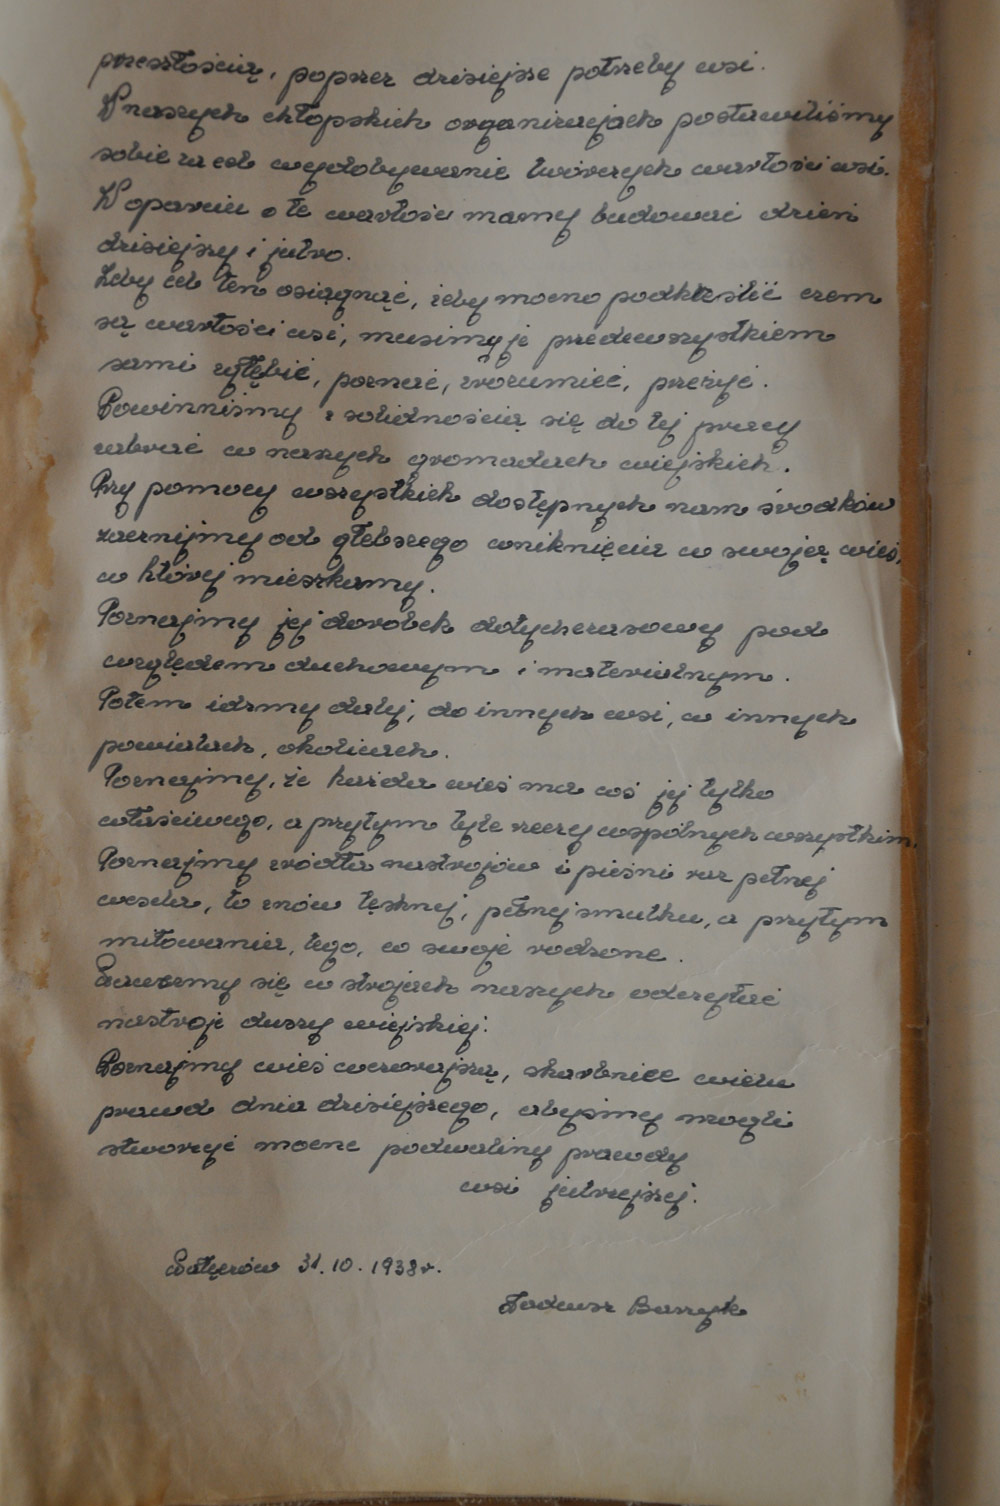 przeszłością, poprzez dzisiejsze potrzeby wsi.
W naszych chłopskich organizacjach postawiliśmy
sobie za cel wydobywanie twórczych wartości wsi.
W oparciu o te wartości mamy budować dzień
dzisiejszy i jutro.
Żeby cel ten osiągnąć, żeby mocno podkreślić czem
są wartości wsi, musimy je przedewszystkiem
sami zgłębić, poznać, zrozumieć, przeżyć.
Powinniśmy z solidnością się do tej pracy
zabrać w naszych gromadach wiejskich.
Przy pomocy wszystkich dostępnych nam środków
zacznijmy od głębszego wniknięcia w swoją wieś,
w której mieszkamy.
Poznajmy jej dorobek dotychczasowy pod
względem duchowym i materialnym.
Potem idźmy dalej, do innych wsi, w innych
powiatach, okolicach.
Poznajmy, że każda wieś ma coś jej tylko
właściwego, a przytym tyle rzeczy wspólnych wszystkim.
Poznajmy źródła nastrojów i pieśni raz pełnej
wesela, to znów tęsknej, pełnej smutku, a przytym
miłowania, tego, co swoje rodzone.
się w strojach naszych odczytać
nastroje duszy wiejskiej.
Poznajmy wieś wczorajszą, skarbnicę wielu
prawd dnia dzisiejszego, abyśmy mogli
stworzyć mocne podwaliny prawdy
wsi jutrzejszej.
31.10.1938r.
Tadeusz Baszyk